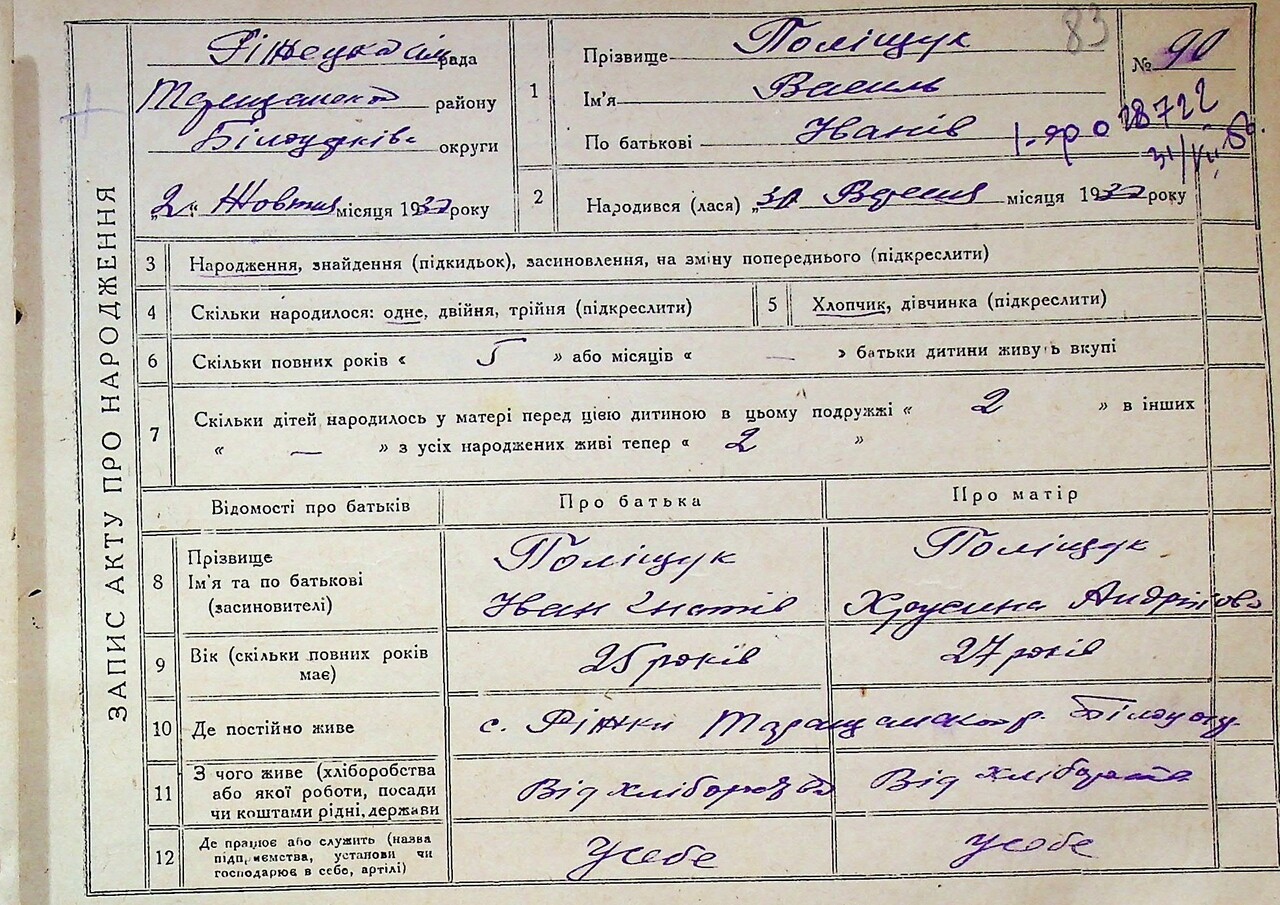 ЗАПИС АКТУ ПРО НАРОДЖЕННЯ
83
рада
району
округи
"2" Жовтня місяця 19 року
№ 90
28722
1 Прізвище Поліщук
Ім'я Василь
По батькові Іванів
2 Народився (лася) „30 Вересня місяця 19 року
3 Народження, знайдення (підкидьок), засиновлення, на зміну попереднього (підкреслити)
4 Скільки народилося: одне, двійня, трійня (підкреслити) 5 Хлопчик, дівчинка (підкреслити)
6 Скільки повних років « 5 » або місяців « — » батьки дитини живуть вкупі
7 Скільки дітей народилось у матері перед цією дитиною в цьому подружжі « 2 » в інших
« — » з усіх народжених живі тепер « 2 »
Відомості про батьків Про батька Про матір
8 Прізвище
Ім'я та по батькові
(засновителі)
Поліщук
Іван Гнатів
Поліщук
Хрусина Андріїова
9 Вік (скільки повних років
має)
25 років 27 років
10 Де постійно живе с. Ріжки
11 З чого живе (хліборобства
або якої роботи, посади
чи коштами рідні, держави
Від хліборобства Від хліборобства
12 Де працює або служить (назва
підприємства, установи чи
господарює в себе, артілі)
У себе У себе